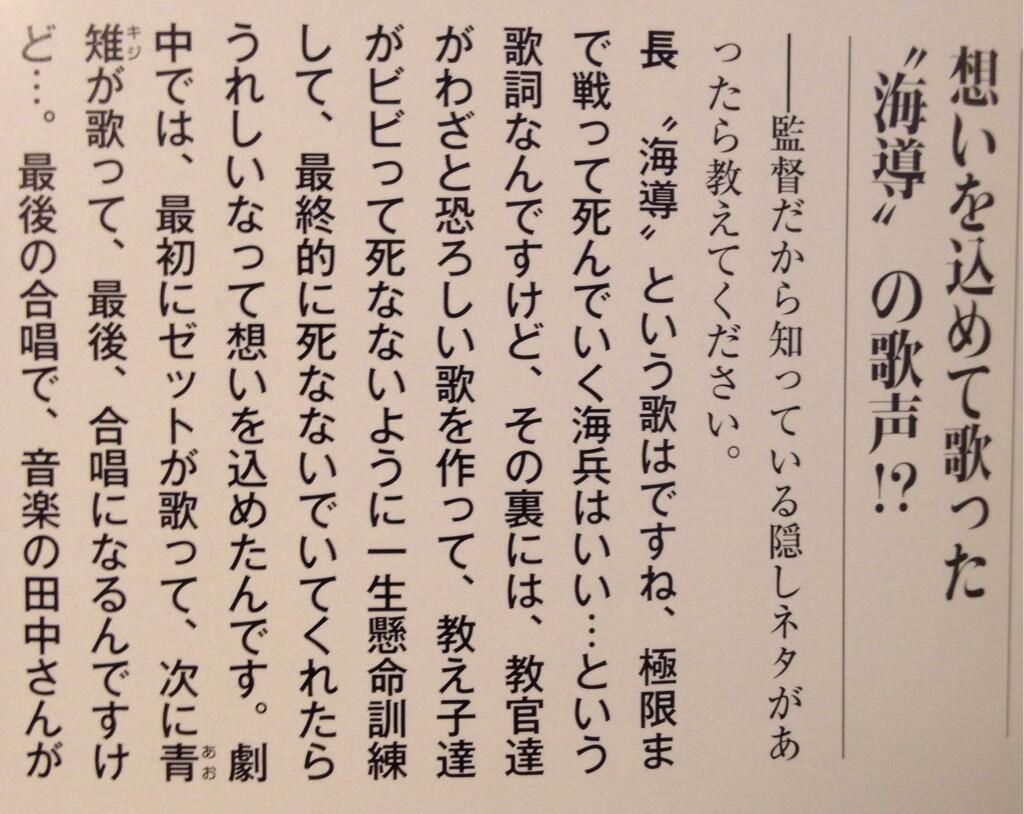 想いを込めて歌った
〝海導〟の歌声!?
――監督だから知っている隠しネタがあ
ったら教えてください。
長　〝海導〟という歌はですね、極限ま
で戦って死んでいく海兵はいい…という
歌詞なんですけど、その裏には、教官達
がわざと恐ろしい歌を作って、教え子達
がビビって死なないように一生懸命訓練
して、最終的に死なないでいてくれたら
うれしいなって想いを込めたんです。劇
中では、最初にゼットが歌って、次に青
あお
雉が歌って、最後、合唱になるんですけ
キジ
ど…。最後の合唱で、音楽の田中さんが